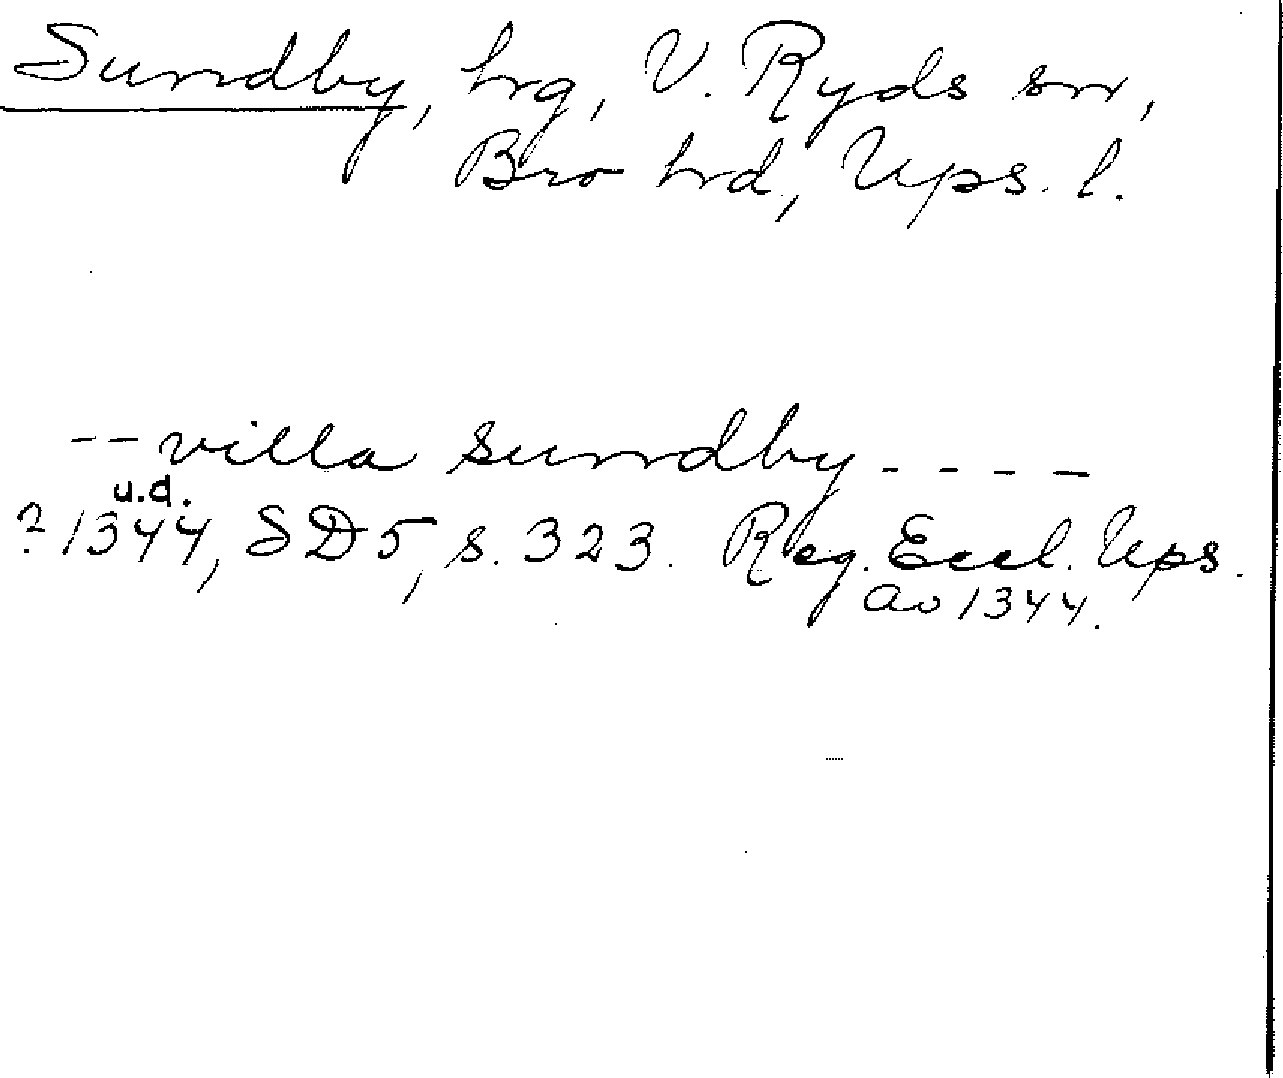 Sundby, hrg, V. Ryds sn,
Bro hrd, Ups. l.
-- villa sundby - - - -
u.d.
? 1344, SD5, s. 323. Reg. Eccl. Ups.
av 1344.